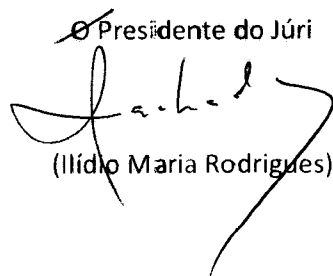 O Presidente do Júri
(Ilídio Maria Rodrigues)